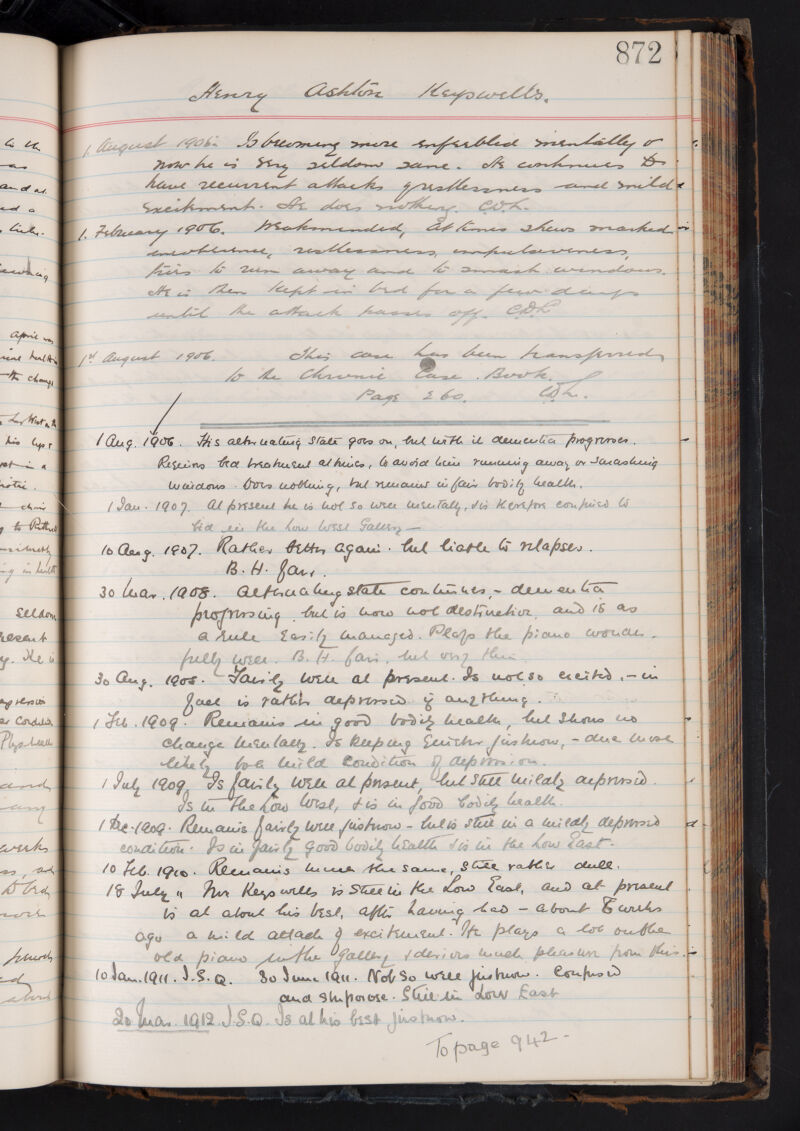 872
Henry Ashton Keyswells.
1. August 1905. Is becoming more enfeebled mentally &
now he is very seldom sane. He continues to
have recurrent attacks of restlessness and mild
excitement. He does nothing. C.D.L.
1. February 1906. Weakminded, At times shews marked
incoherence, restlessness, impulsiveness,
tries to run away and to smash windows.
He is then kept in bed for a few days
until the attack passes off. C.D.L
1st August 1906. This case has been transferred
to the Chronic Case Book.
Page 260. C.D.L.
1 Aug. 1906. His alternating state goes on, but with it dementia progresses.
Requires bed treatment at times, to avoid him running away or smashing
windows. Does nothing, but remains in fair bodily health.
1 Jan. 1907. At present he is not so well mentally, & is therefore confined to
bed in the Low West Gallery —
10 Aug. 1907. Rather better again. but liable to relapses.
B. H. fair.
30 Mar. 1908. Alternating state continues, - dementia
progressing, but is now not destructive, and is as
a rule easily managed. Plays the piano wonder-
fully well. B. H. fair, but very thin.
30 Aug. 1908. Fairly well at present. Is not so excited, - in
fact is rather depressed if anything.
1 Feb. 1909. Remains in good bodily health, but shows no
change mentally. Is keeping quieter just now, - due most
likely to a mild condition of depression.
1 July 1909. Is fairly well at present, but still mildly depressed.
Is in the Low West, & is in good bodily health.
1 Dec. 1909. Remains fairly well just now - but is still in a mildly depressed
condition. Is in fairly good bodily health & is in the Low East.
10 Feb. 1910. Remains much the same, still rather dull.
18 July " Mr Keyswells is still in the Low East, and at present
is at about his best, after having had - about 6 weeks
ago a mild attack of excitement. He plays a lot on the
old piano in the gallery, & derives much pleasure from this.
10 Jan. 1911. I.S.Q. 30 June 1911. Not so well just now. Confused
and stuporose. Still in Low East
20 Mar. 1912. I.S.Q. Is at his best just now.
To page 942 -